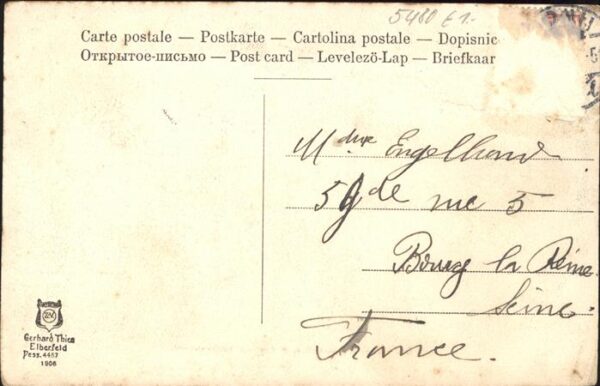 5480 € 1.-
Carte postale — Postkarte — Cartolina postale — Dopisnic
Открытое-письмо — Post card — Levelezö-Lap — Briefkaar
Mdme Engelhard
59 Gde rue 5
Bourg la Reine
Seine.
France.
Gerhard Thien
Elberfeld
Pess. 4457
1906